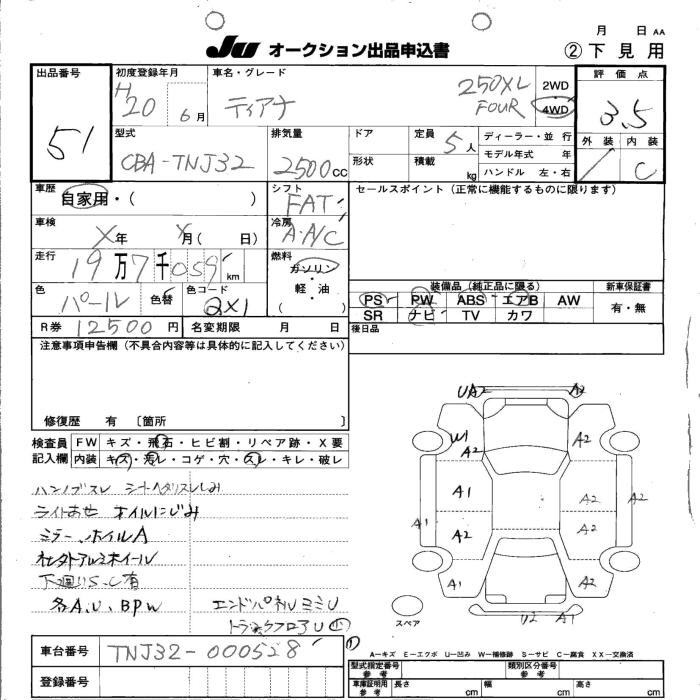 月 日 AA
JU オークション出品申込書 ②下見用
出品番号 初度登録年月 車名・グレード 評価点
51 H20 6月 ティアナ 250XL FOUR 2WD 4WD 3.5
型式 排気量 ドア 定員 ディーラー・並行 外装 内装
CBA-TNJ32 2500cc 5人 モデル年式 年 C
形状 積載 kg ハンドル 左・右
車歴 シフト セールスポイント(正常に機能するものに限ります)
自家用・( ) FAT
車検 冷房
X年 X月( 日) A・A/C
走行 燃料
19万7千059km ガソリン・軽油 ( )
装備品(純正品に限る) 新車保証書
色 色替 色コード PS PW ABS エアB AW 有・無
パール 2X1 SR ナビ TV カワ
R券 12500円 名変期限 月 日 後日品
注意事項申告欄(不具合内容等は具体的に記入してください)
修復歴 有 〔箇所 〕
検査員記入欄 FW キズ・飛石・ヒビ割・リペア跡・X要
内装 キズ・汚レ・コゲ・穴・スレ・キレ・破レ
ハンドルスレ シートヘタリスレしみ
ライトあせ オイルにじみ
ミラー、ホイルA
社外アルミホイール
下廻りS、C有
各A、U、BPW エンドパネルユミU
トランクフロアU 小
UA2 A2
W1 A2 A2
A1 A2 A2
A1 A2 A2
A1 A2
スペア U2 A1
車台番号 TNJ32-000528 ①
A－キズ E－エクボ U－凹み W－補修跡 S－サビ C－腐食 XX－交換済
登録番号 型式指定番号 参考 類別区分番号 参考
車庫証明用 参考 長さ cm 幅 cm 高さ cm